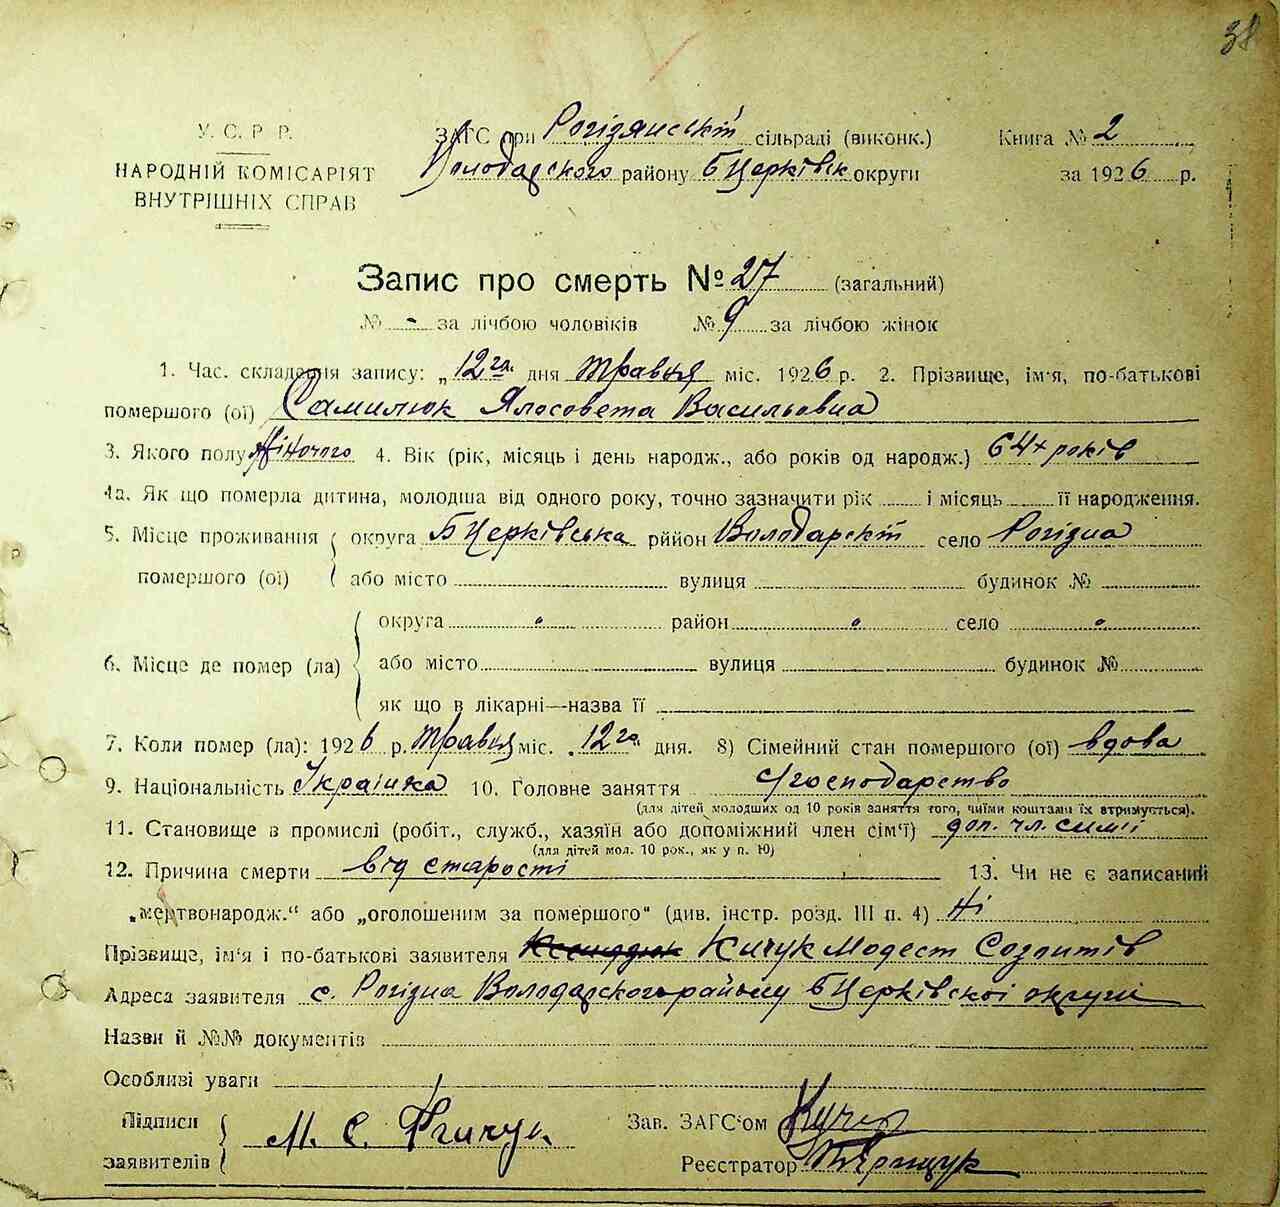 38
У. С. Р. Р.
НАРОДНІЙ КОМІСАРІЯТ
ВНУТРІШНІХ СПРАВ
ЗАГС при Рогізянській сільраді (виконк.) Книга № 2
Володарского району Б Церківск округи за 1926 р.
Запис про смерть № 27 (загальний)
№ - за лічбою чоловіків № 9 за лічбою жінок
1. Час. складення запису: „12го“ дня травня міс. 1926 р. 2. Прізвище, ім'я, по-батькові
помершого (ої) Самилюк Ялосовета Васильовна
3. Якого полу Жіночого 4. Вік (рік, місяць і день народж., або років од народж.) 64х років
4а. Як що померла дитина, молодша від одного року, точно зазначити рік і місяць її народження.
5. Місце проживання помершого (ої) округа Б Церківська рййон Володарскій село Рогізна
або місто вулиця будинок №
6. Місце де помер (ла) округа " район " село "
або місто вулиця будинок №
як що в лікарні—назва її
7. Коли помер (ла): 1926 р. травня міс. „12го“ дня. 8) Сімейний стан помершого (ої) вдова
9. Національність Українка 10. Головне заняття с/господарство
(для дітей молодших од 10 років заняття того, чиїми коштами їх втримується).
11. Становище в промислі (робіт., служб., хазяїн або допоміжний член сім'ї) доп. чл. симії
(для дітей мол. 10 рок., як у п. 10)
12. Причина смерти від старості 13. Чи не є записаний
„мертвонародж.“ або „оголошеним за помершого“ (див. інстр. розд. III п. 4) Ні
Прізвище, ім'я і по-батькові заявителя Кичук Модест
Адреса заявителя с. Рогізна Володарского району Б Церківскої округи
Назви й №№ документів
Особливі уваги
Підписи
заявителів М. С.
Зав. ЗАГС'ом
Реєстратор